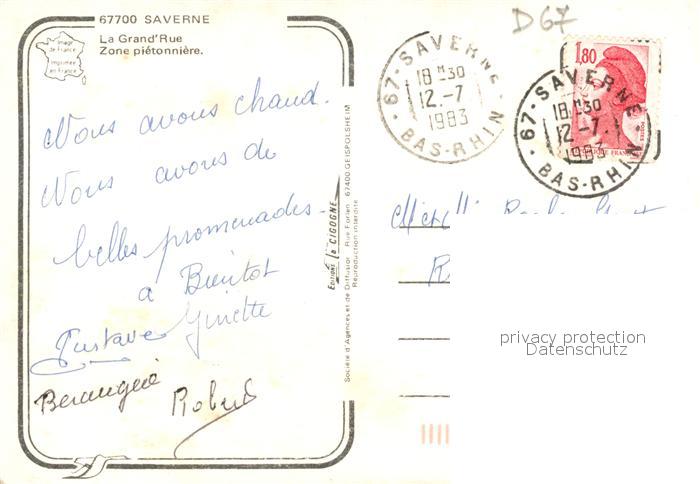 67700 SAVERNE
La Grand'Rue
Zone piétonnière.
Image de France
Imprimée en France
Nous avons chaud.
Nous avons de
belles promenades.
à Bientot
Gustave Ginette
Berangère Robert
Editions la CIGOGNE
Société d'Agences et de Diffusion Rue Forlen 67400 GEISPOLSHEIM
Reproduction interdite
D67
67 - SAVERNE
18 H 30
12 -7
1983
BAS-RHIN
1,80
67 - SAVERNE
18 H 30
12 -7
1983
BAS-RHIN
privacy protection
Datenschutz